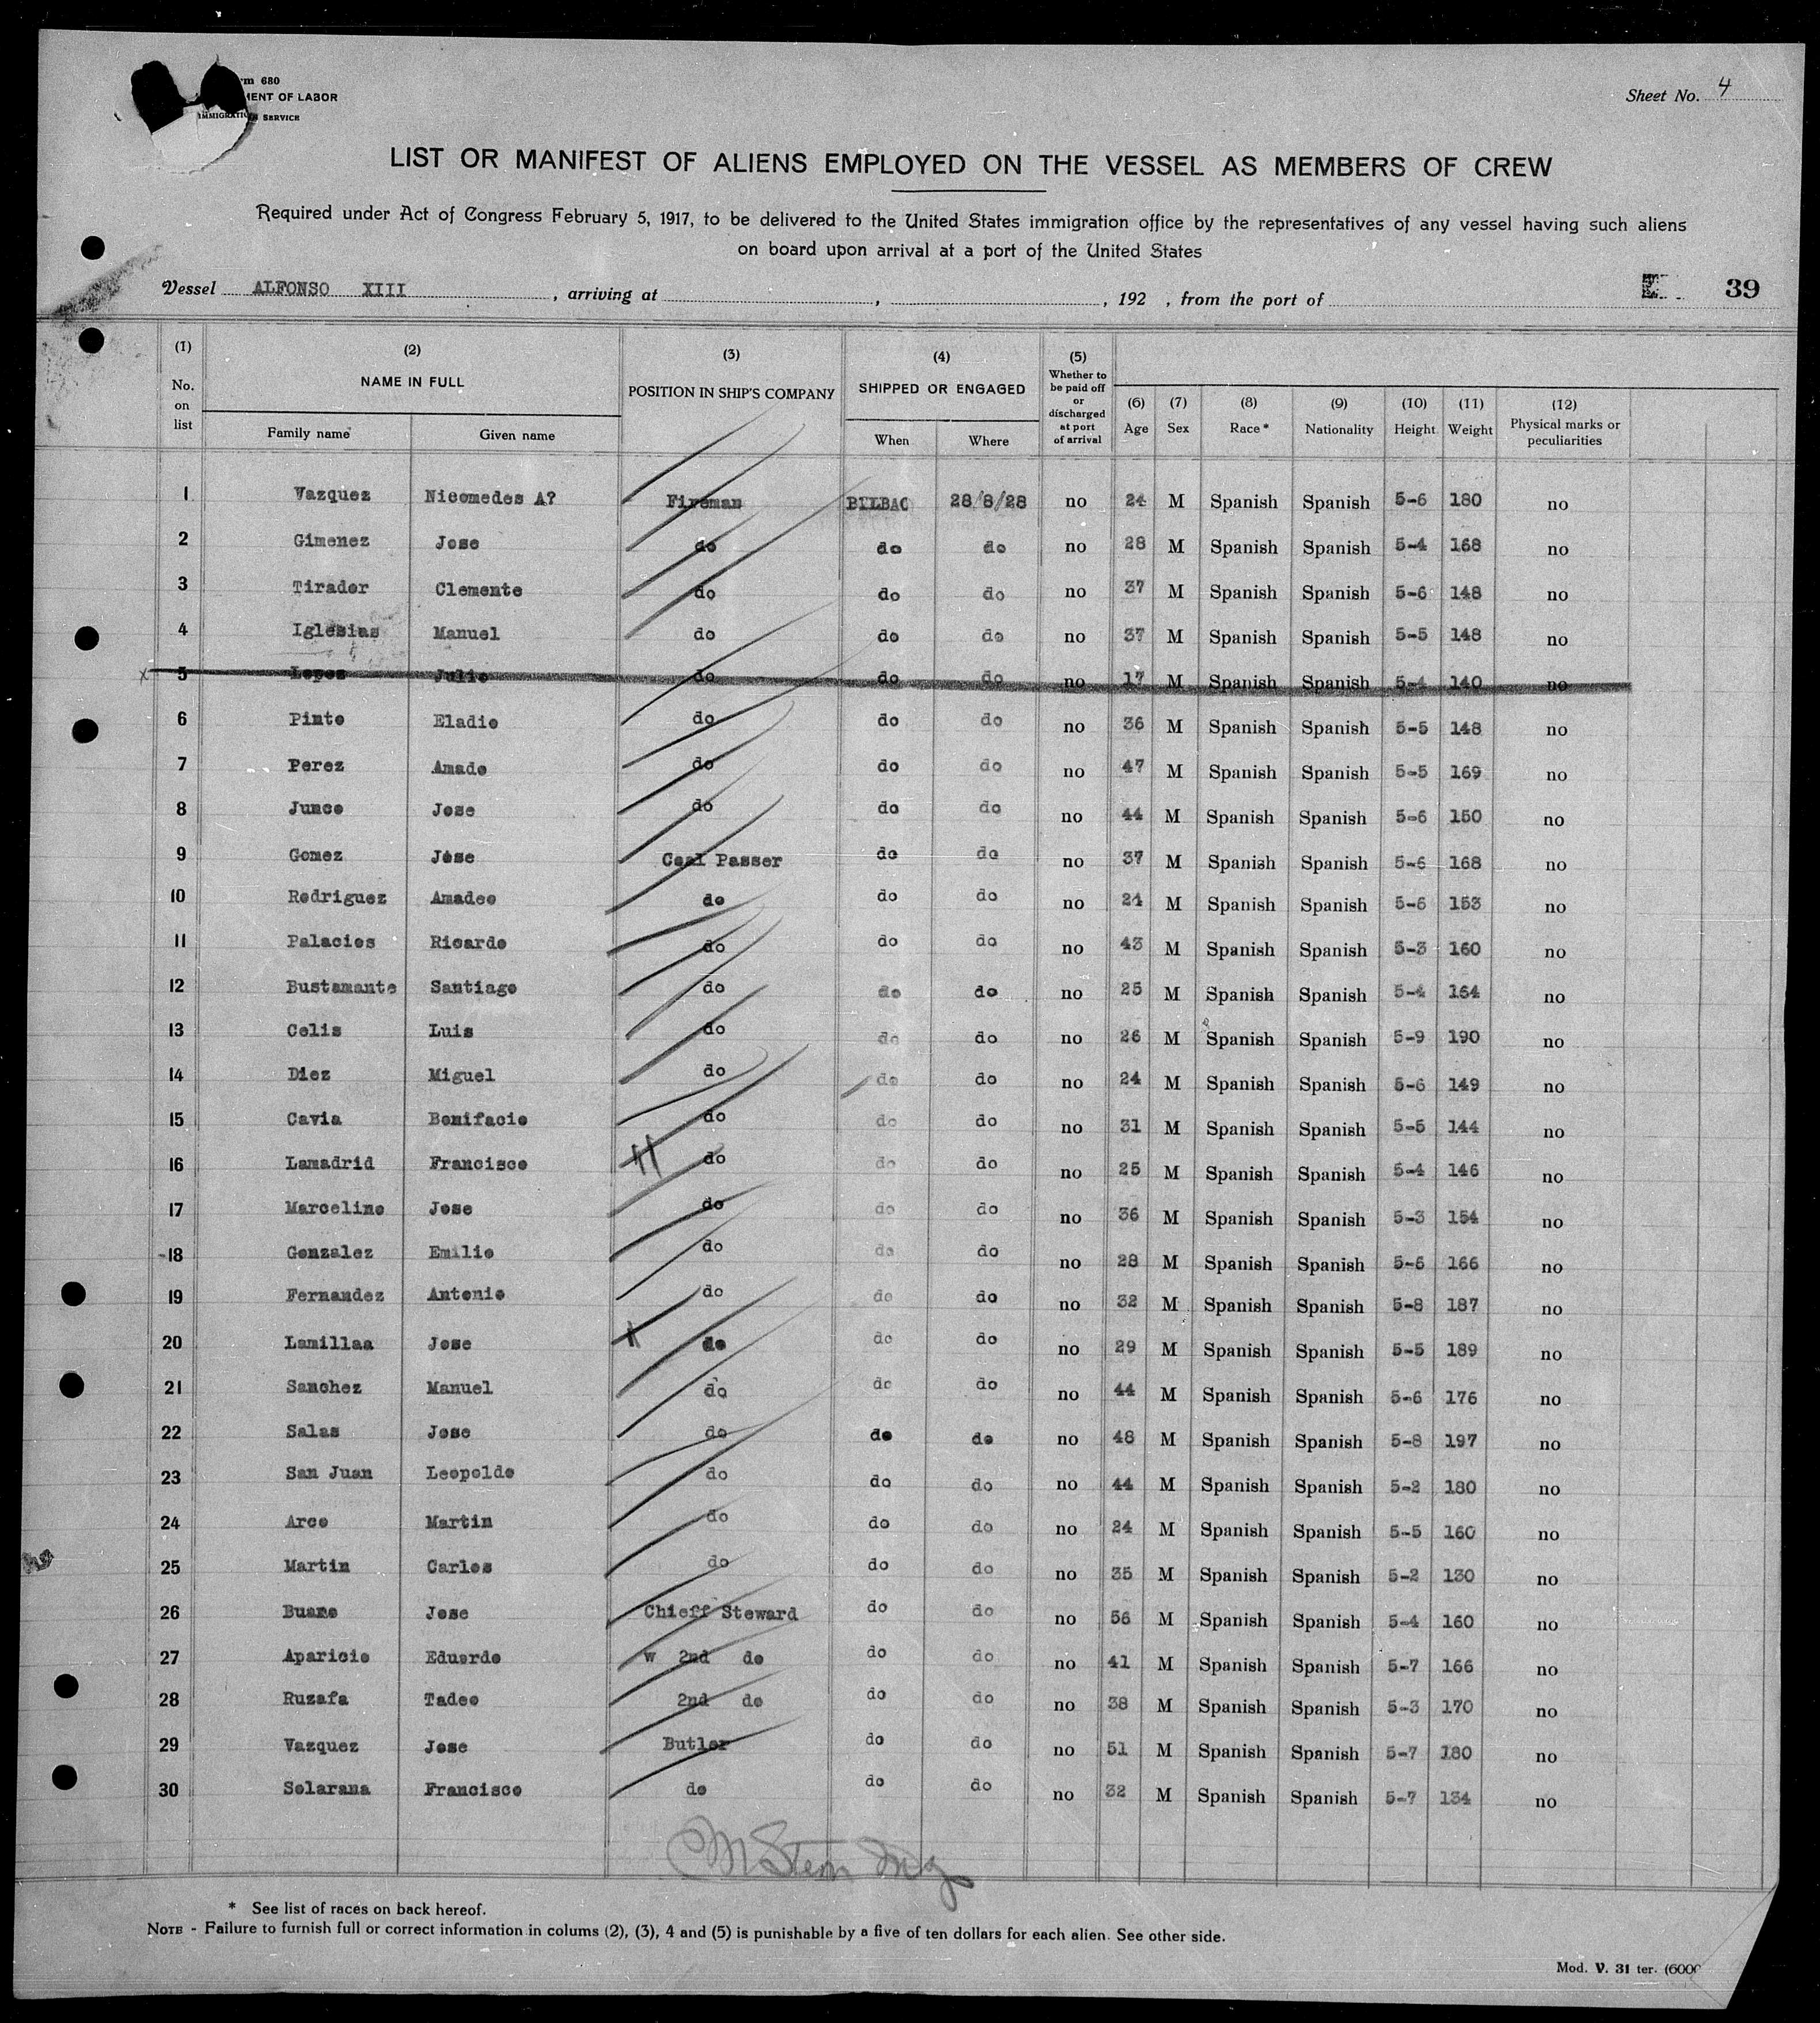 rm 680
MENT OF LABOR
IMMIGRATION SERVICE
Sheet No. 4
LIST OR MANIFEST OF ALIENS EMPLOYED ON THE VESSEL AS MEMBERS OF CREW
Required under Act of Congress February 5, 1917, to be delivered to the United States immigration office by the representatives of any vessel having such aliens
on board upon arrival at a port of the United States
Vessel ALFONSO XIII , arriving at , , 192 , from the port of 39
(1) No. on list (2) NAME IN FULL Family name Given name (3) POSITION IN SHIP'S COMPANY (4) SHIPPED OR ENGAGED When Where (5) Whether to be paid off or discharged at port of arrival (6) Age (7) Sex (8) Race * (9) Nationality (10) Height (11) Weight (12) Physical marks or peculiarities
1 Vazquez Nicomedes A? Fireman BILBAO 28/8/28 no 24 M Spanish Spanish 5-6 180 no
2 Gimenez Jose do do do no 28 M Spanish Spanish 5-4 168 no
3 Tirador Clemente do do do no 37 M Spanish Spanish 5-6 148 no
4 Iglesias Manuel do do do no 37 M Spanish Spanish 5-5 148 no
x 5 Lopez Julio do do do no 17 M Spanish Spanish 5-4 140 no
6 Pinto Eladio do do do no 36 M Spanish Spanish 5-5 148 no
7 Perez Amado do do do no 47 M Spanish Spanish 5-5 169 no
8 Junco Jose do do do no 44 M Spanish Spanish 5-6 150 no
9 Gomez Jose Coal Passer do do no 37 M Spanish Spanish 5-6 168 no
10 Rodriguez Amadeo do do do no 24 M Spanish Spanish 5-6 153 no
11 Palacios Ricardo do do do no 43 M Spanish Spanish 5-3 160 no
12 Bustamante Santiago do do do no 25 M Spanish Spanish 5-4 164 no
13 Celis Luis do do do no 26 M Spanish Spanish 5-9 190 no
14 Diez Miguel do do do no 24 M Spanish Spanish 5-6 149 no
15 Cavia Bonifacio do do do no 31 M Spanish Spanish 5-5 144 no
16 Lamadrid Francisco do do do no 25 M Spanish Spanish 5-4 146 no
17 Marcelino Jose do do do no 36 M Spanish Spanish 5-3 154 no
18 Gonzalez Emilio do do do no 28 M Spanish Spanish 5-6 166 no
19 Fernandez Antonio do do do no 32 M Spanish Spanish 5-8 187 no
20 Lamillaa Jose do do do no 29 M Spanish Spanish 5-5 189 no
21 Sanchez Manuel do do do no 44 M Spanish Spanish 5-6 176 no
22 Salas Jose do do do no 48 M Spanish Spanish 5-8 197 no
23 San Juan Leopoldo do do do no 44 M Spanish Spanish 5-2 180 no
24 Arce Martin do do do no 24 M Spanish Spanish 5-5 160 no
25 Martin Carlos do do do no 35 M Spanish Spanish 5-2 130 no
26 Buano Jose Chieff Steward do do no 56 M Spanish Spanish 5-4 160 no
27 Aparicio Eduardo w 2nd do do do no 41 M Spanish Spanish 5-7 166 no
28 Ruzafa Tadeo 2nd do do do no 38 M Spanish Spanish 5-3 170 no
29 Vazquez Jose Butler do do no 51 M Spanish Spanish 5-7 180 no
30 Solarana Francisco do do do no 32 M Spanish Spanish 5-7 134 no
* See list of races on back hereof.
NOTE - Failure to furnish full or correct information in colums (2), (3), 4 and (5) is punishable by a five of ten dollars for each alien. See other side.
Mod. V. 31 ter. (6000